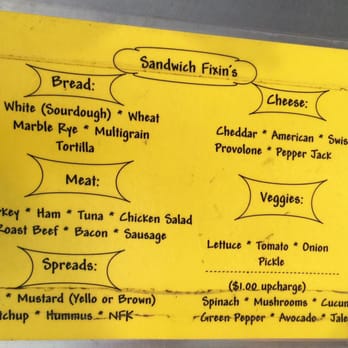 Sandwich Fixin's
Bread:
White (Sourdough) * Wheat
Marble Rye * Multigrain
Tortilla
Cheese:
Cheddar * American *
Provolone * Pepper Jack
Meat:
* Ham * Tuna * Chicken Salad
Roast Beef * Bacon * Sausage
Veggies:
Lettuce * Tomato * Onion
Pickle
($1.00 upcharge)
Spinach * Mushrooms *
Green Pepper * Avocado *
Spreads:
* Mustard (Yello or Brown)
* Hummus * NFK